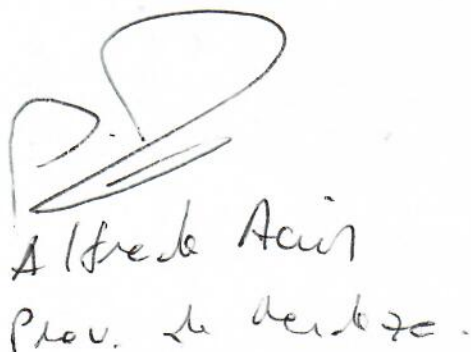 Alfredo
Prov. de Mendoza.